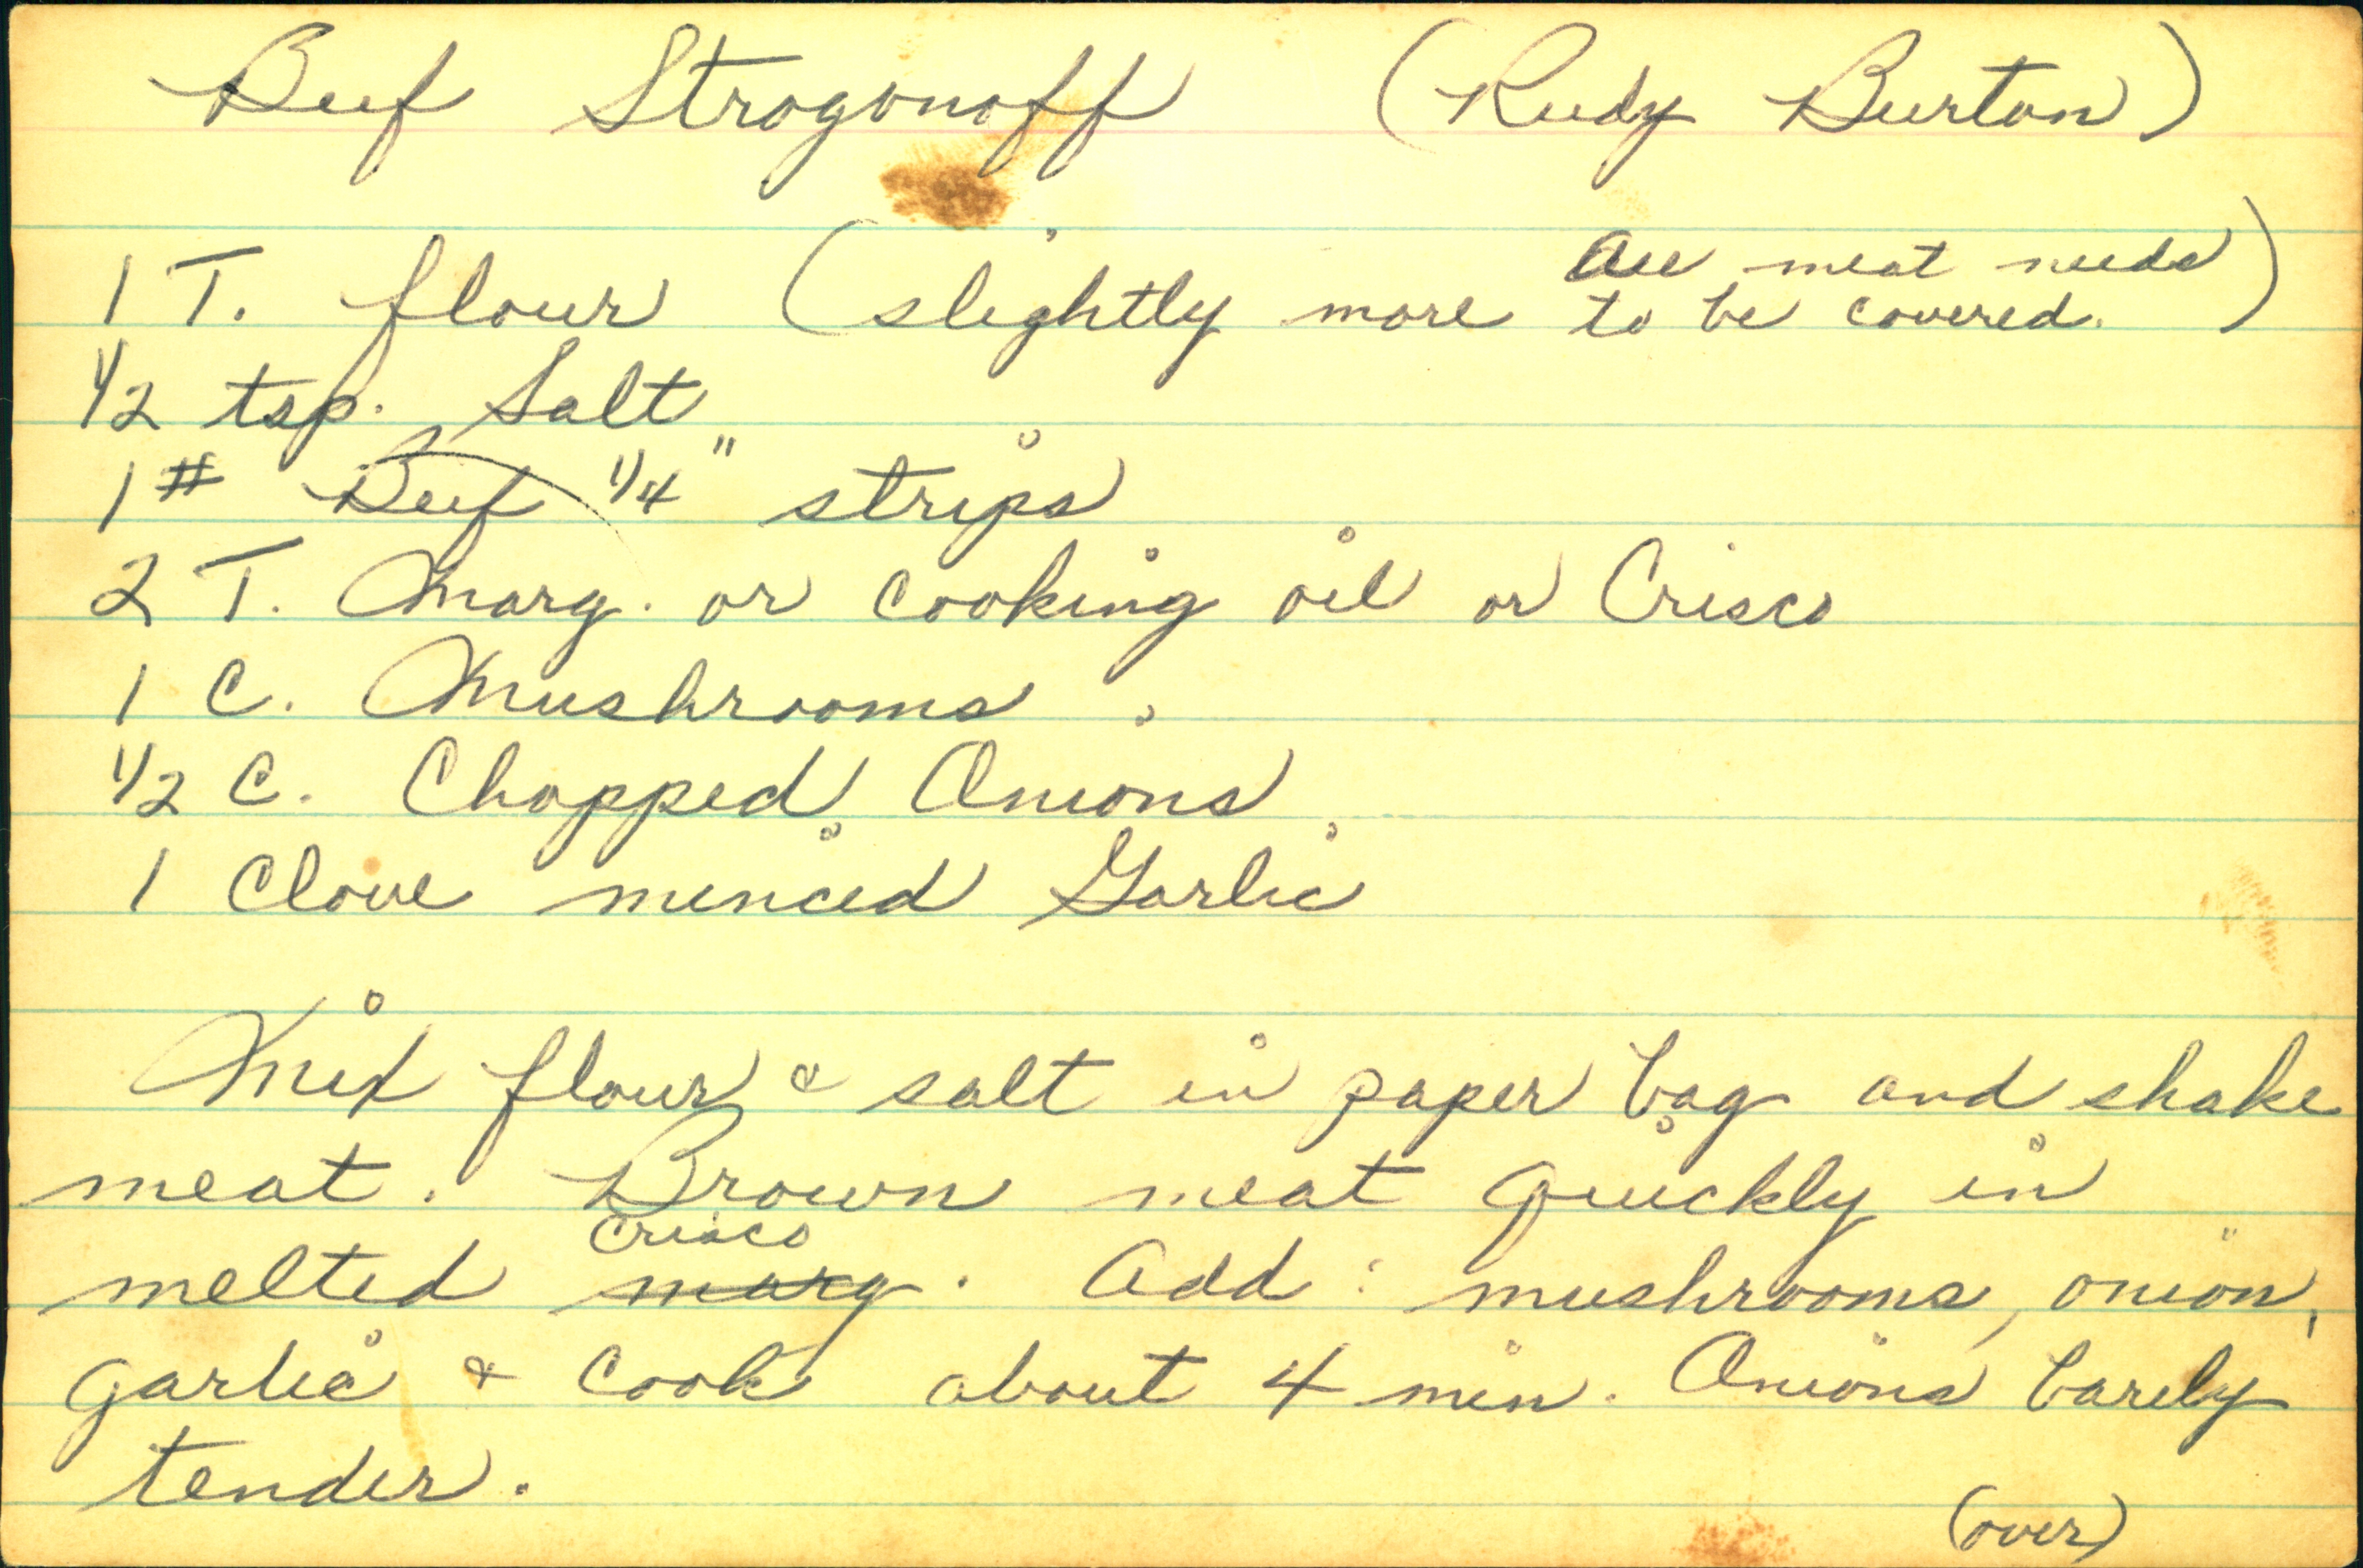 Beef Strogonoff (Rudy Burton)
1 T. flour (slightly more All meat needs to be covered.)
1/2 tsp. Salt
1# Beef 1/4" strips
2 T. Marg. or cooking oil or Crisco
1 C. Mushrooms
1/2 C. Chopped Onions
1 Clove minced Garlic
Mix flour & salt in paper bag and shake
meat. Brown meat quickly in
Crisco
melted marg. Add: mushrooms, onion,
garlic & cook about 4 min. Onions barely
tender.
(over)